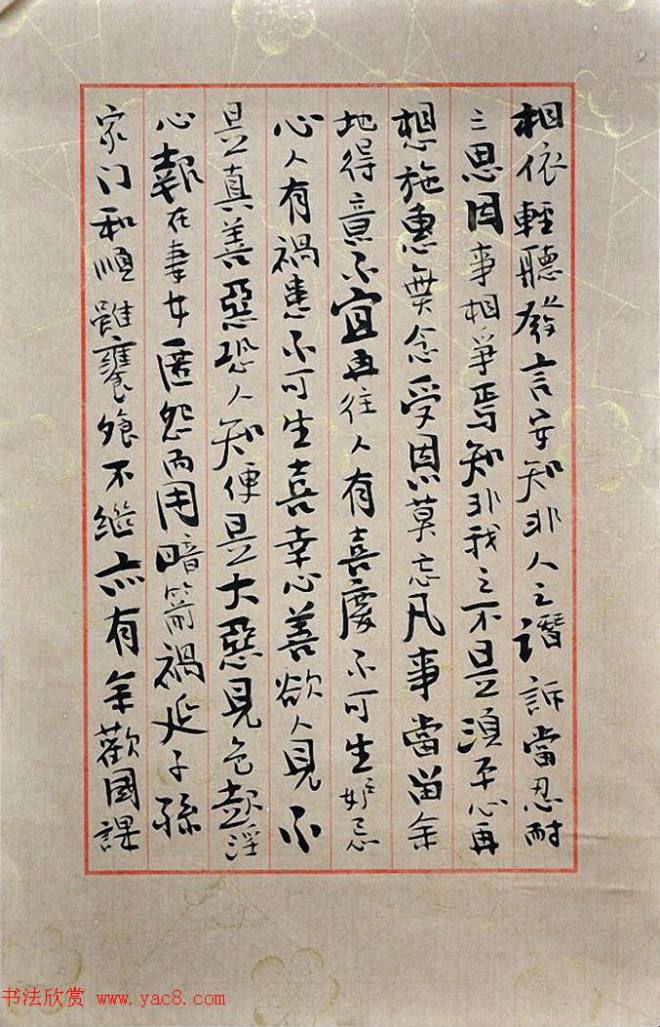 相依輕聽發言安知非人之譖訴當忍耐
三思因事相爭焉知非我之不是須平心再
想施惠無念受恩莫忘凡事當留余
地得意不宜再往人有喜慶不可生妒忌
心人有禍患不可生喜幸心善欲人見不
是真善惡恐人知便是大惡見色起淫
心報在妻女匿怨而用暗箭禍延子孫
家门和順雖饔飧不继亦有余歡國課
书法欣赏 www.yac8.com